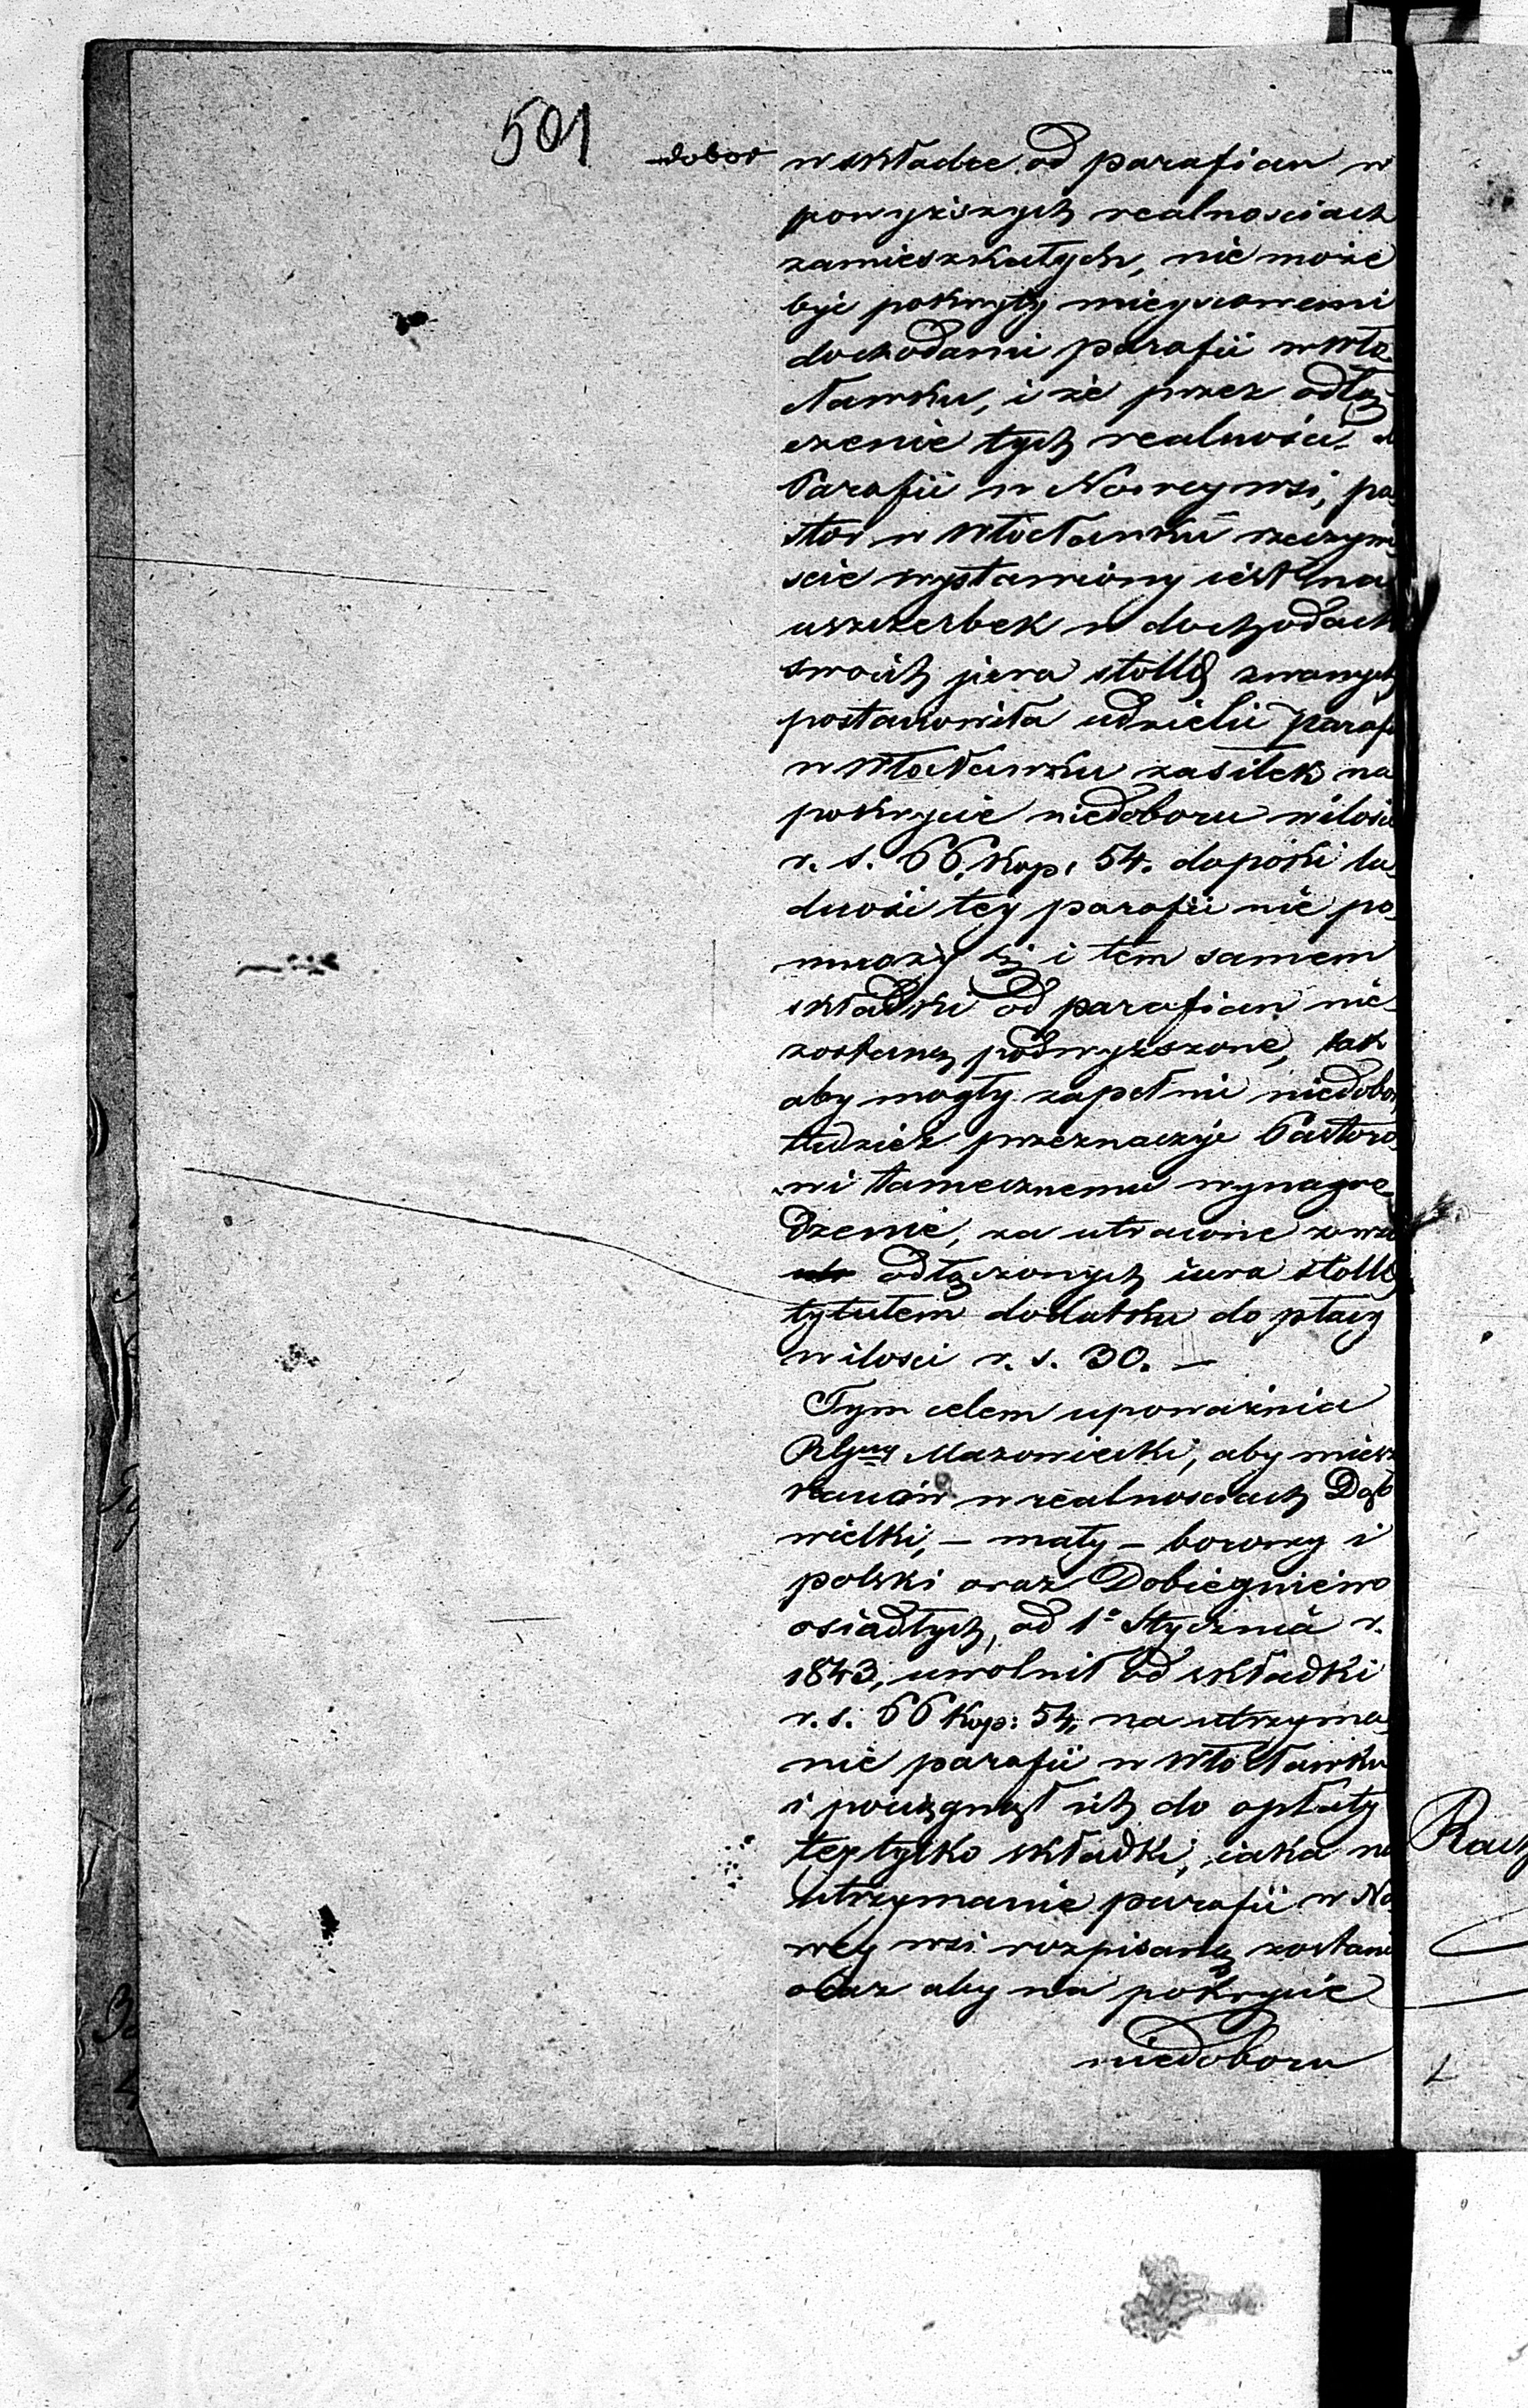 501
dobor w składce od parafian w
powyższych realnosciach
zamieszkałych, nie może
być pokryty mieyscowemi
dochodami parafii w Wło-
cławku, i że przez odłą-
czenie tych realności
Parafii w Nowey wsi, pa-
stor w Włocławku rzeczywi
scie wystawiony iest na
uszczerbek w dochodach
swoich jura stollæ zwanych
postanowiła udzielić paraf
w Włocławku zasiłek na
pokrycie niedoboru w ilości
r. s. 66. kop. 54. dopóki lu-
dność tey parafii nie po-
mnoży się i tem samem
składki od parafian nie
zostaną podwyższone, tak
aby mogły zapełnić niedobor,
tudzież przeznaczyć Pastoro-
wi tamecznemu wynagro-
dzenie, za utracone z wsi
odłączonych iura stollæ
tytułem dodatku do płacy
w ilosci r. s. 30. —
Tym celem upoważnia
Rząd Mazowiecki, aby miesz
kańców w realnosciach Dąb
wielki, — mały — borowy i
polski oraz Dobiegniewo
osiadłych, od 1º Stycznia r.
1843, uwolnił od składki
r. s. 66 kop: 54, na utrzyma-
nie parafii w Włocławku
i pociągnął ich do opłaty
tey tylko składki, iaka na
utrzymanie parafii w No
wey wsi rozpisaną zostanie
oraz aby na pokrycie
niedoboru